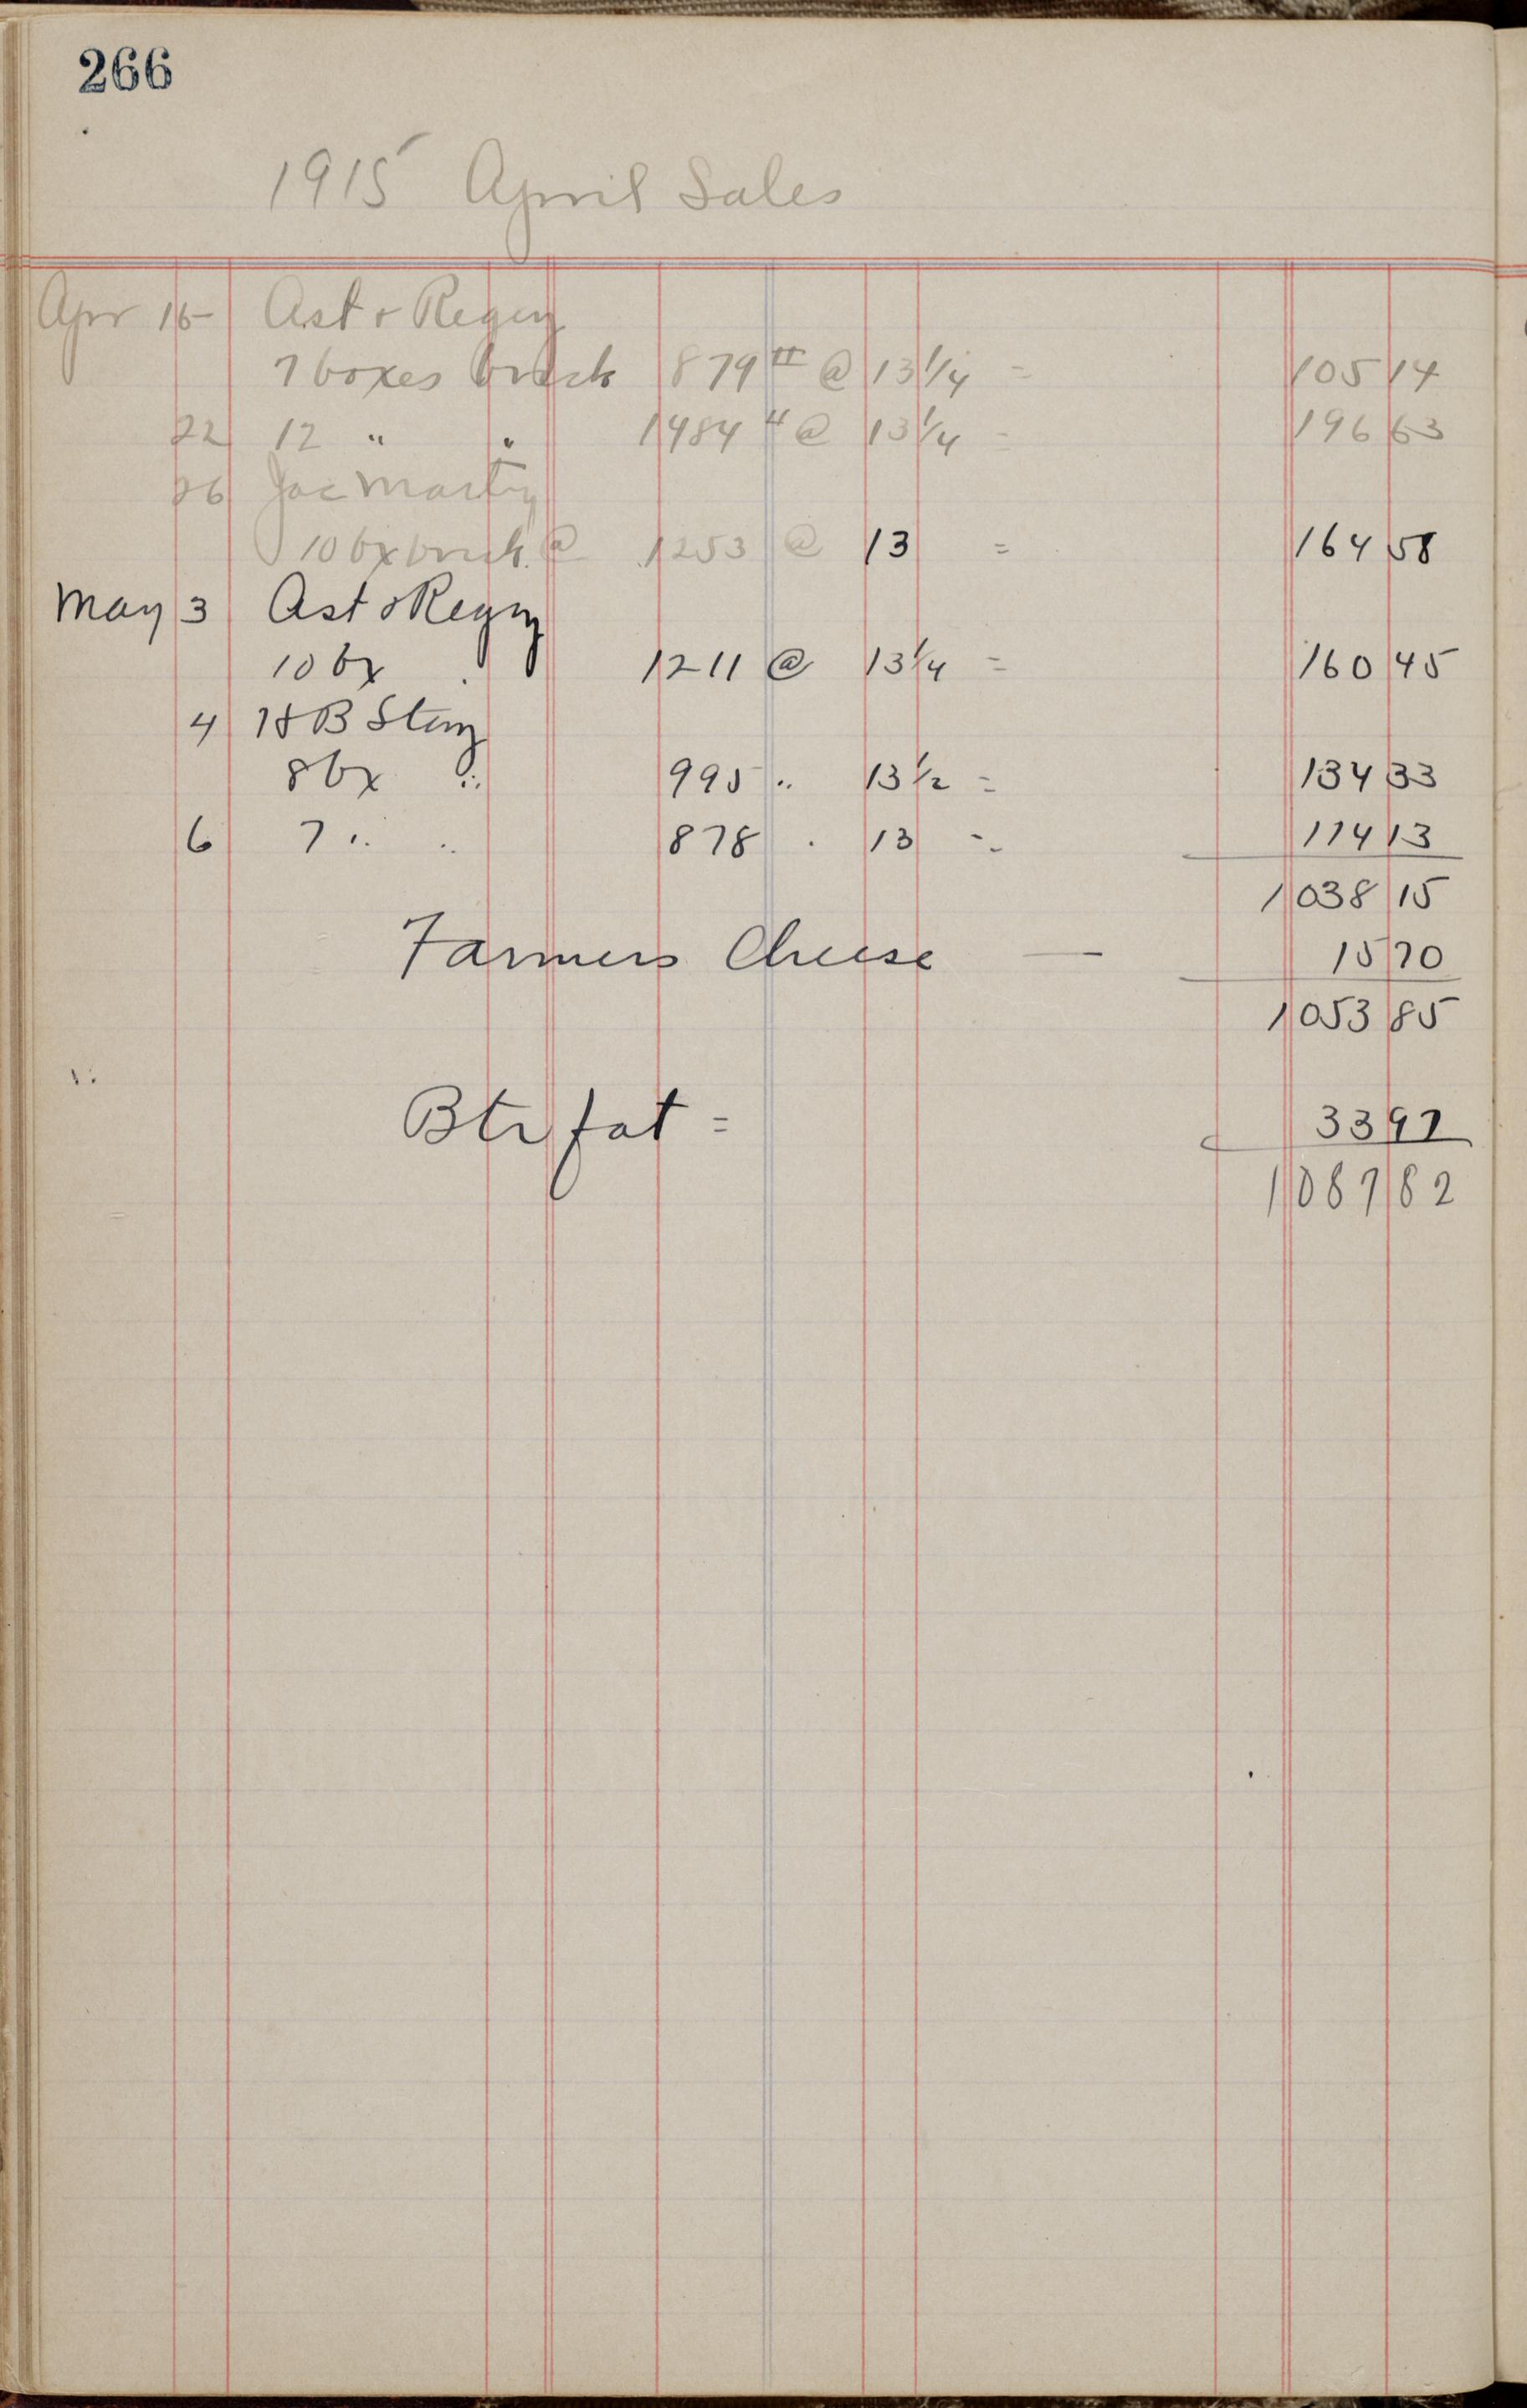 266
1915 April Sales
Apr 15 Ast & Regez
7 boxes brick 879 # @ 13 1/4 = 105 14
22 12 " " 1484 # @ 13 1/4 = 196 63
26 Jac Marty
10 bx brick @ 1253 @ 13 = 164 58
May 3 Ast & Regez
10 bx 1211 @ 13 1/4 = 160 45
4 H B
8 bx " 995 " 13 1/2 = 134 33
6 7 " " 878 " 13 = 114 13
1038 15
Farmers Cheese — 15 70
1053 85
Btr fat = 33 97
1087 82